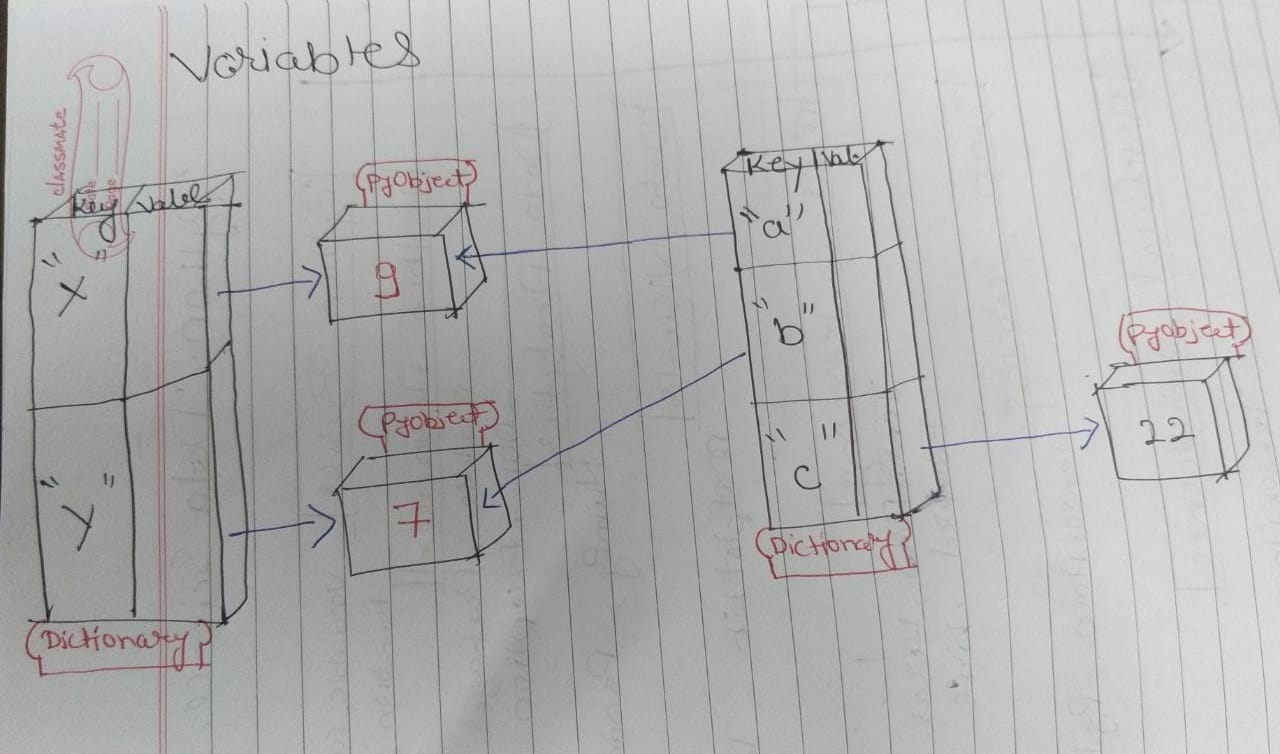 Variables
classmate
Key Value
"x"
"y"
(Dictionary)
(PyObject)
9
(PyObject)
7
Key Val
"a"
"b"
"c"
(Dictionary)
(PyObject)
22